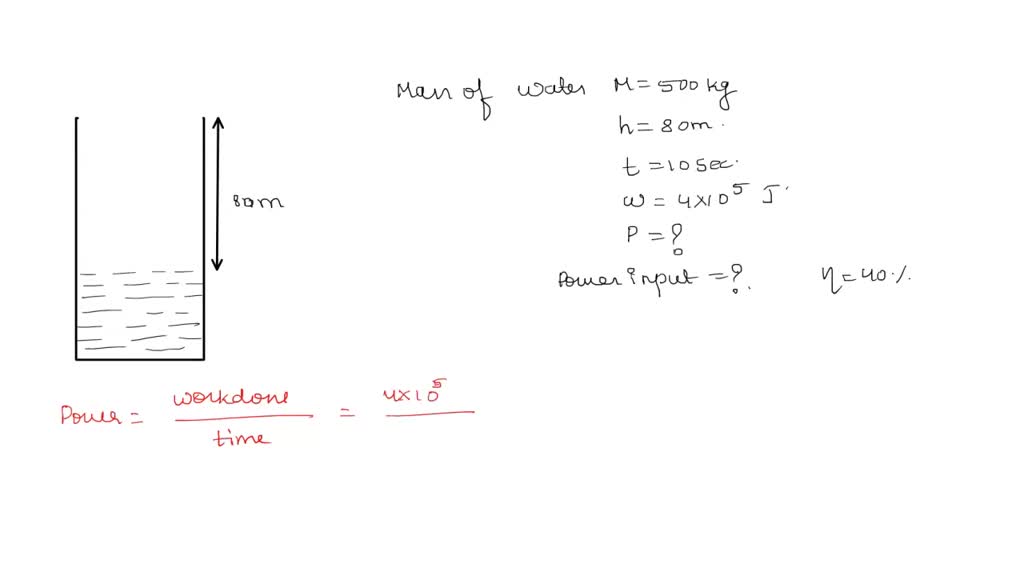 Mass of water M = 500 kg
h = 80m.
t = 10 sec.
W = 4×10⁵ J
P = ?
Power input = ? η = 40%.
80m
Power = workdone / time = 4×10⁵